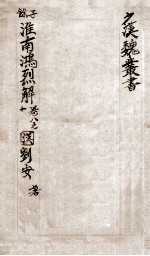 漢魏叢書
子餘
淮南鴻烈解
卷八之十
漢劉安著